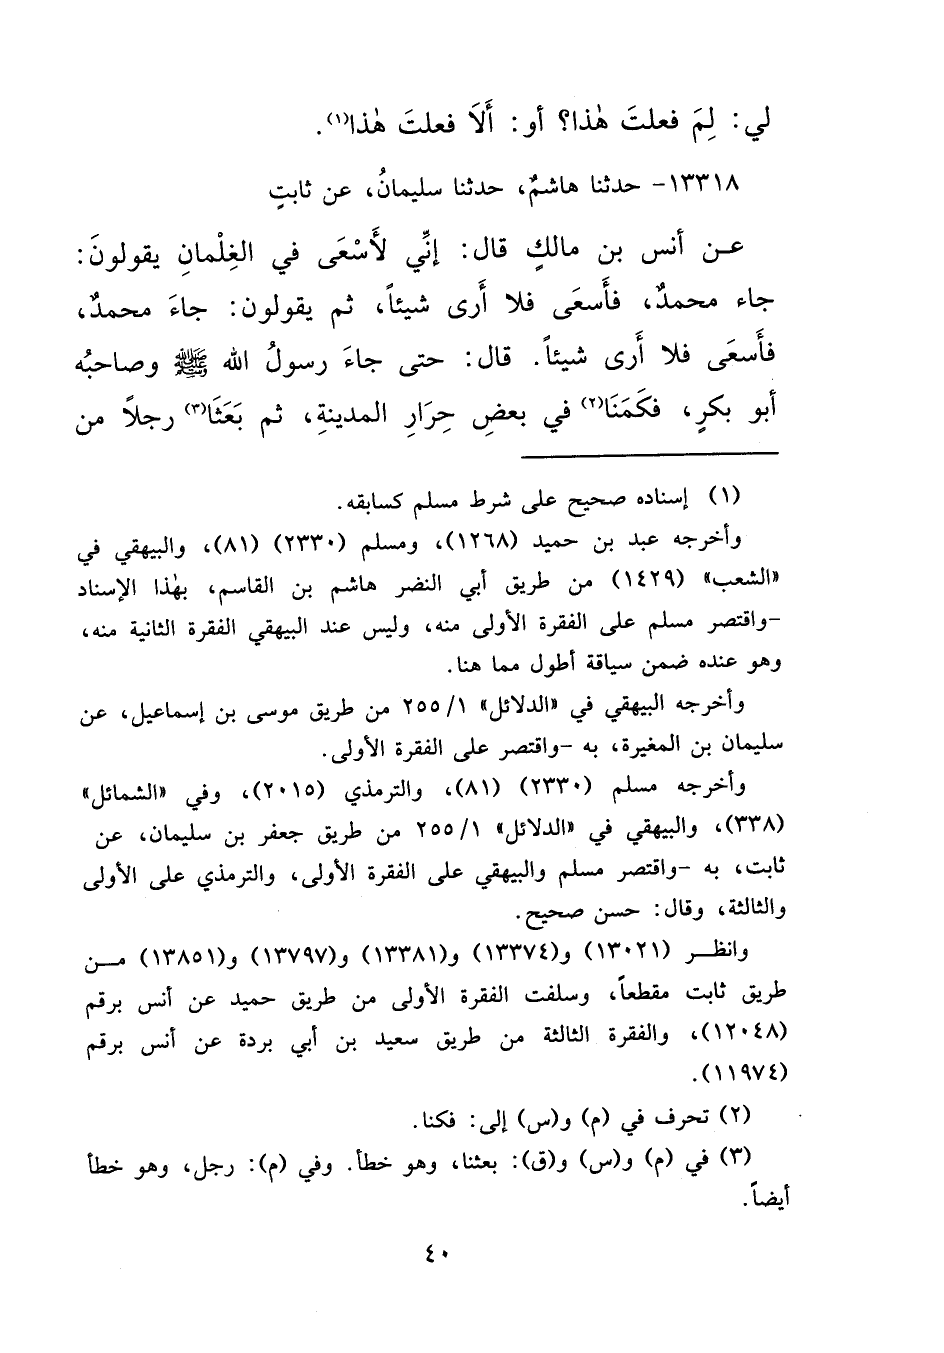 لي: لِمَ فعلتَ هٰذا؟ أو: أَلَا فعلتَ هٰذا(١).
١٣٣١٨- حدثنا هاشمٌ، حدثنا سليمانُ، عن ثابتٍ
عـن أنس بن مالكٍ قال: إنِّي لَأَسْعَى في الغِلْمانِ يقولونَ:
جاء محمدٌ، فأَسعَى فلا أَرى شيئاً، ثم يقولون: جاءَ محمدٌ،
فأَسعَى فلا أَرى شيئاً. قال: حتى جاءَ رسولُ الله ﷺ وصاحبُه
أبو بكرٍ، فكَمَنَا(٢) في بعضِ حِرَارِ المدينةِ، ثم بَعَثَا(٣) رجلاً من
(١) إسناده صحيح على شرط مسلم كسابقه.
وأخرجه عبد بن حميد (١٢٦٨)، ومسلم (٢٣٣٠) (٨١)، والبيهقي في
«الشعب» (١٤٢٩) من طريق أبي النضر هاشم بن القاسم، بهٰذا الإسناد
-واقتصر مسلم على الفقرة الأولى منه، وليس عند البيهقي الفقرة الثانية منه،
وهو عنده ضمن سياقة أطول مما هنا.
وأخرجه البيهقي في «الدلائل» ١/ ٢٥٥ من طريق موسى بن إسماعيل، عن
سليمان بن المغيرة، به -واقتصر على الفقرة الأولى.
وأخرجه مسلم (٢٣٣٠) (٨١)، والترمذي (٢٠١٥)، وفي «الشمائل»
(٣٣٨)، والبيهقي في «الدلائل» ١/ ٢٥٥ من طريق جعفر بن سليمان، عن
ثابت، به -واقتصر مسلم والبيهقي على الفقرة الأولى، والترمذي على الأولى
والثالثة، وقال: حسن صحيح.
وانظـــر (١٣٠٢١) و(١٣٣٧٤) و(١٣٣٨١) و(١٣٧٩٧) و(١٣٨٥١) مــن
طريق ثابت مقطعاً، وسلفت الفقرة الأولى من طريق حميد عن أنس برقم
(١٢٠٤٨)، والفقرة الثالثة من طريق سعيد بن أبي بردة عن أنس برقم
(١١٩٧٤).
(٢) تحرف في (م) و(س) إلى: فكنا.
(٣) في (م) و(س) و(ق): بعثنا، وهو خطأ. وفي (م): رجل، وهو خطأ
أيضاً.
٤٠